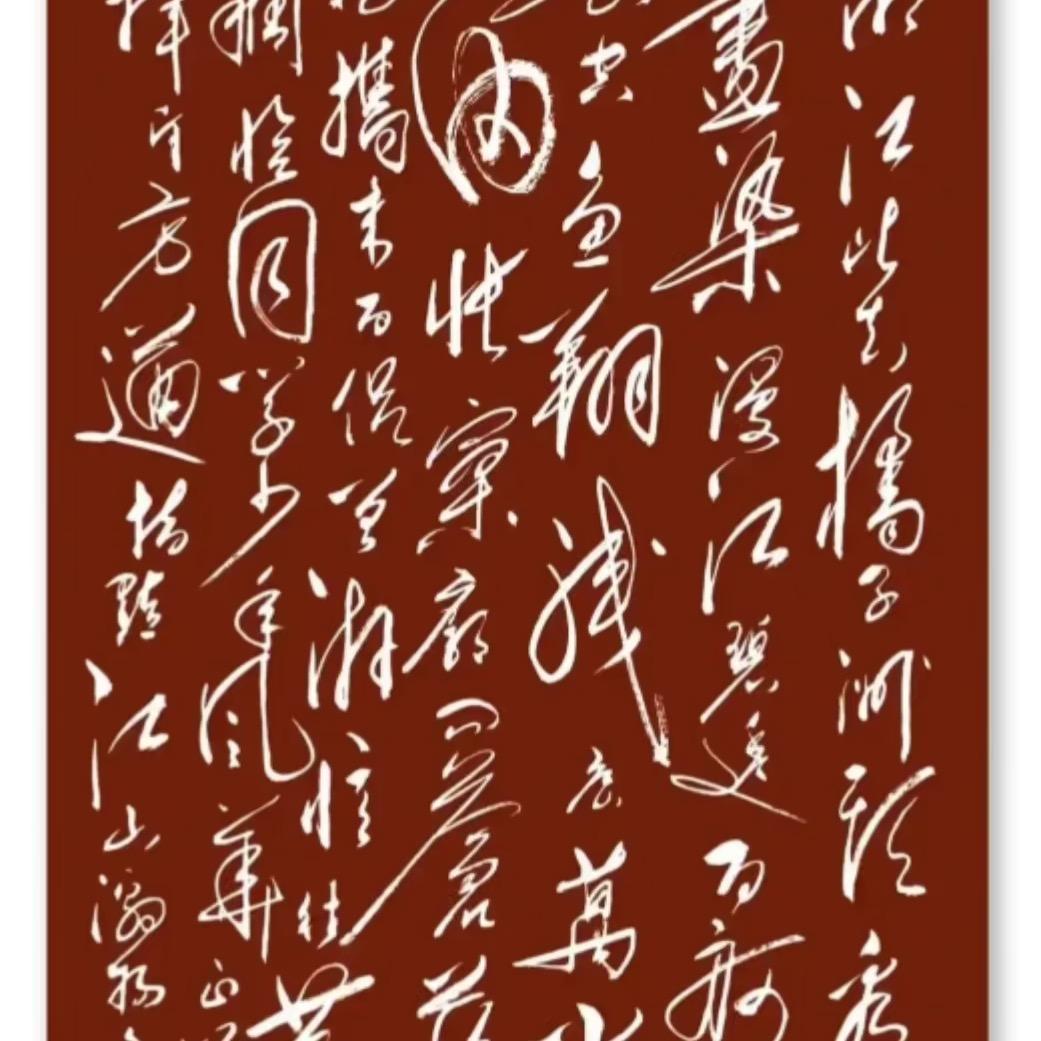 湘江北去橘子洲頭看
盡染漫江碧透百舸
空魚翔淺底萬
由悵寥廓問蒼茫
攜來百侶曾遊憶往昔
稠恰同學少年風華正
揮斥方遒指點江山激揚